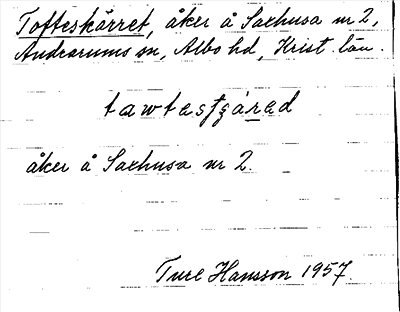 Tofteskärret, åker å Saxhusa nr 2,
Andrarums sn, Albo hd, Krist. län.
tawtasʃgárad
åker å Saxhusa nr 2.
Ture Hansson 1957.